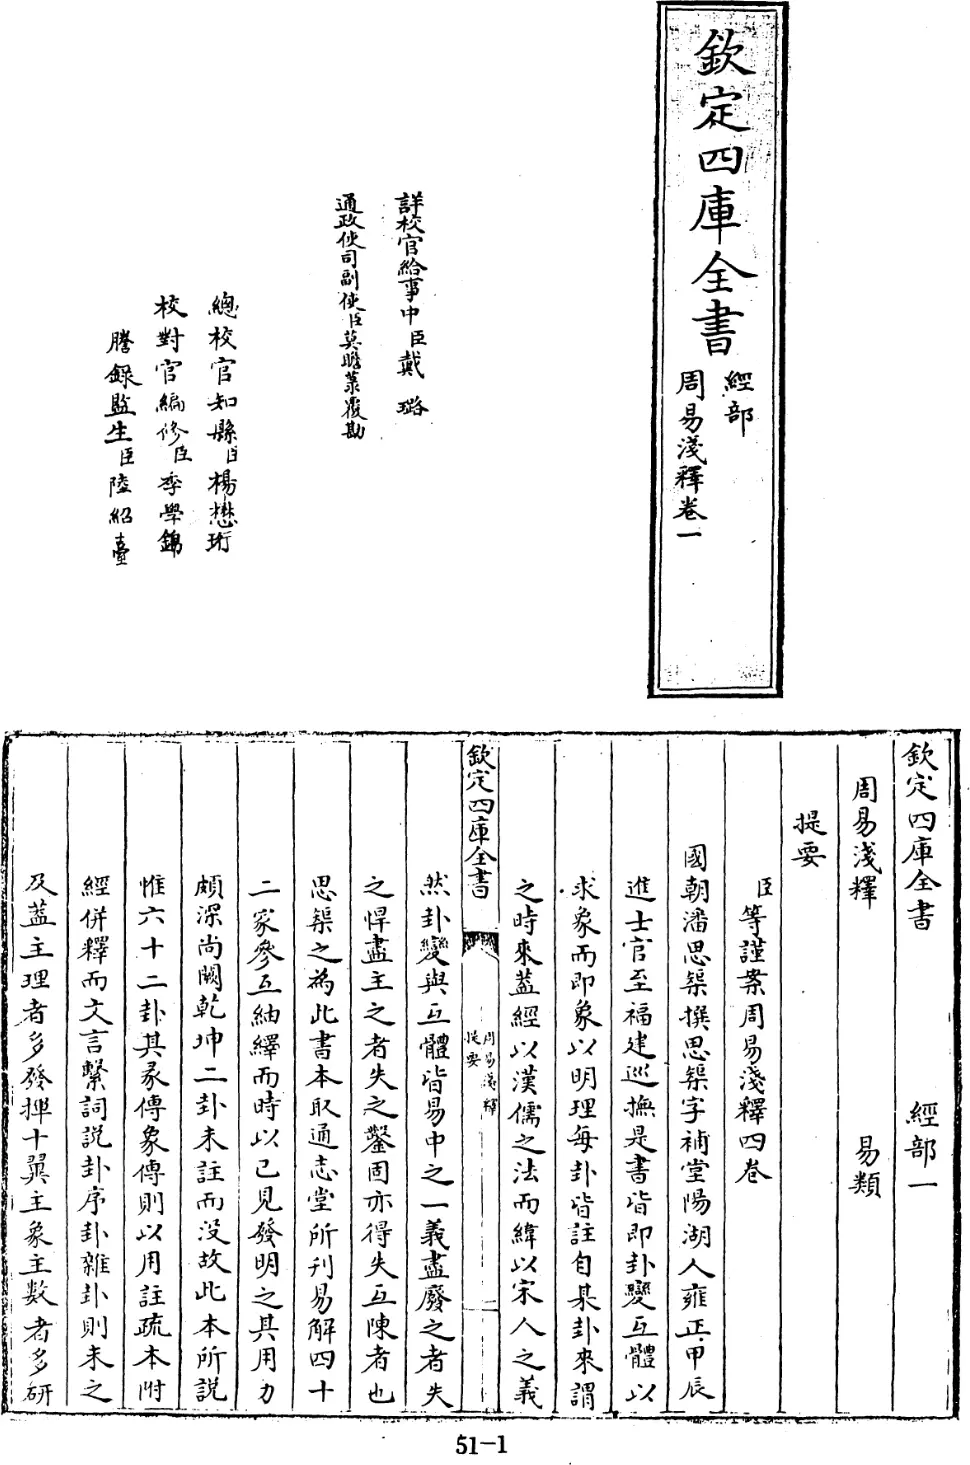 欽定四庫全書
經部
周易淺釋卷一
詳校官給事中臣戴璐
通政使司副使臣莫瞻菉覆勘
總校官知縣臣楊懋珩
校對官編修臣季學錦
謄錄監生臣陸紹臺
欽定四庫全書 經部一
周易淺釋 易類
提要
臣等謹案周易淺釋四卷
國朝潘思榘撰思榘字補堂陽湖人雍正甲辰
進士官至福建巡撫是書皆即卦變互體以
求象而即象以明理每卦皆註自某卦來謂
之時來蓋經以漢儒之法而緯以宋人之義
欽定四庫全書
周易淺釋
提要
一
然卦變與互體皆易中之一義盡廢之者失
之悍盡主之者失之鑿固亦得失互陳者也
思榘之為此書本取通志堂所刊易解四十
二家參互紬繹而時以己見發明之其用力
頗深尚闕乾坤二卦未註而没故此本所説
惟六十二卦其彖傳象傳則以用註疏本附
經併釋而文言繫詞説卦序卦雜卦則未之
及蓋主理者多發揮十翼主象主數者多研
51-1